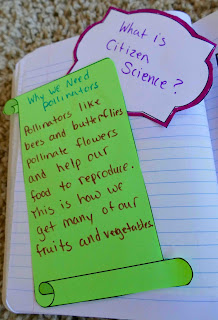 What is
Citizen
Science?
Why We Need
pollinators
Pollinators like
bees and butterflies
pollinate flowers
and help our
food to reproduce.
This is how we
get many of our
fruits and vegetables.